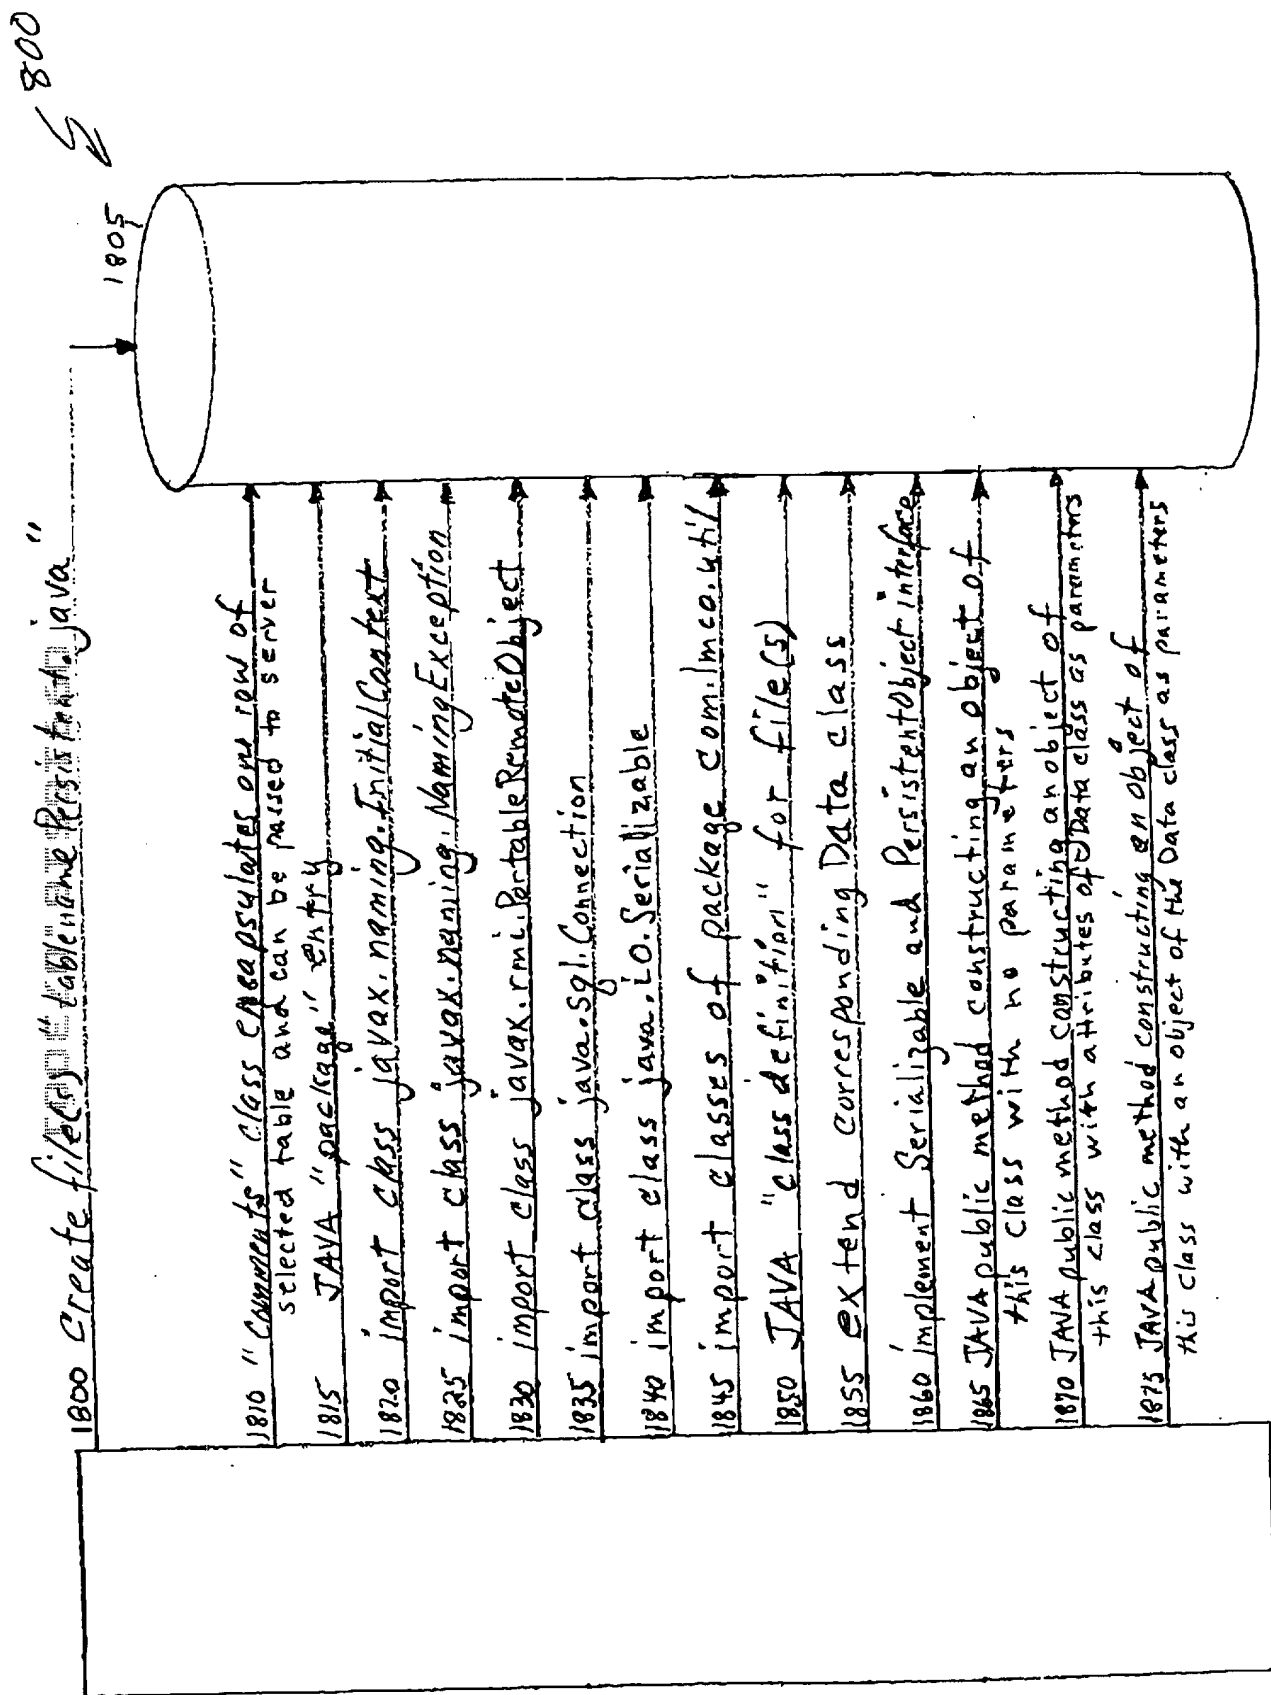 800
1805
1800 Create file(s) "tablenamePersistent.java"
1810 "Comments" class encapsulates one row of
selected table and can be passed to server
1815 JAVA "package" entry
1820 import class javax.naming.InitialContext
1825 import class javax.naming.NamingException
1830 import class javax.rmi.PortableRemoteObject
1835 import class java.sql.Connection
1840 import class java.io.Serializable
1845 import classes of package com.lmco.util
1850 JAVA "class definition" for file(s)
1855 extend corresponding Data class
1860 implement Serializable and PersistentObject interface
1865 JAVA public method constructing an object of
this class with no parameters
1870 JAVA public method constructing an object of
this class with attributes of Data class as parameters
1875 JAVA public method constructing an object of
this class with an object of the Data class as parameters